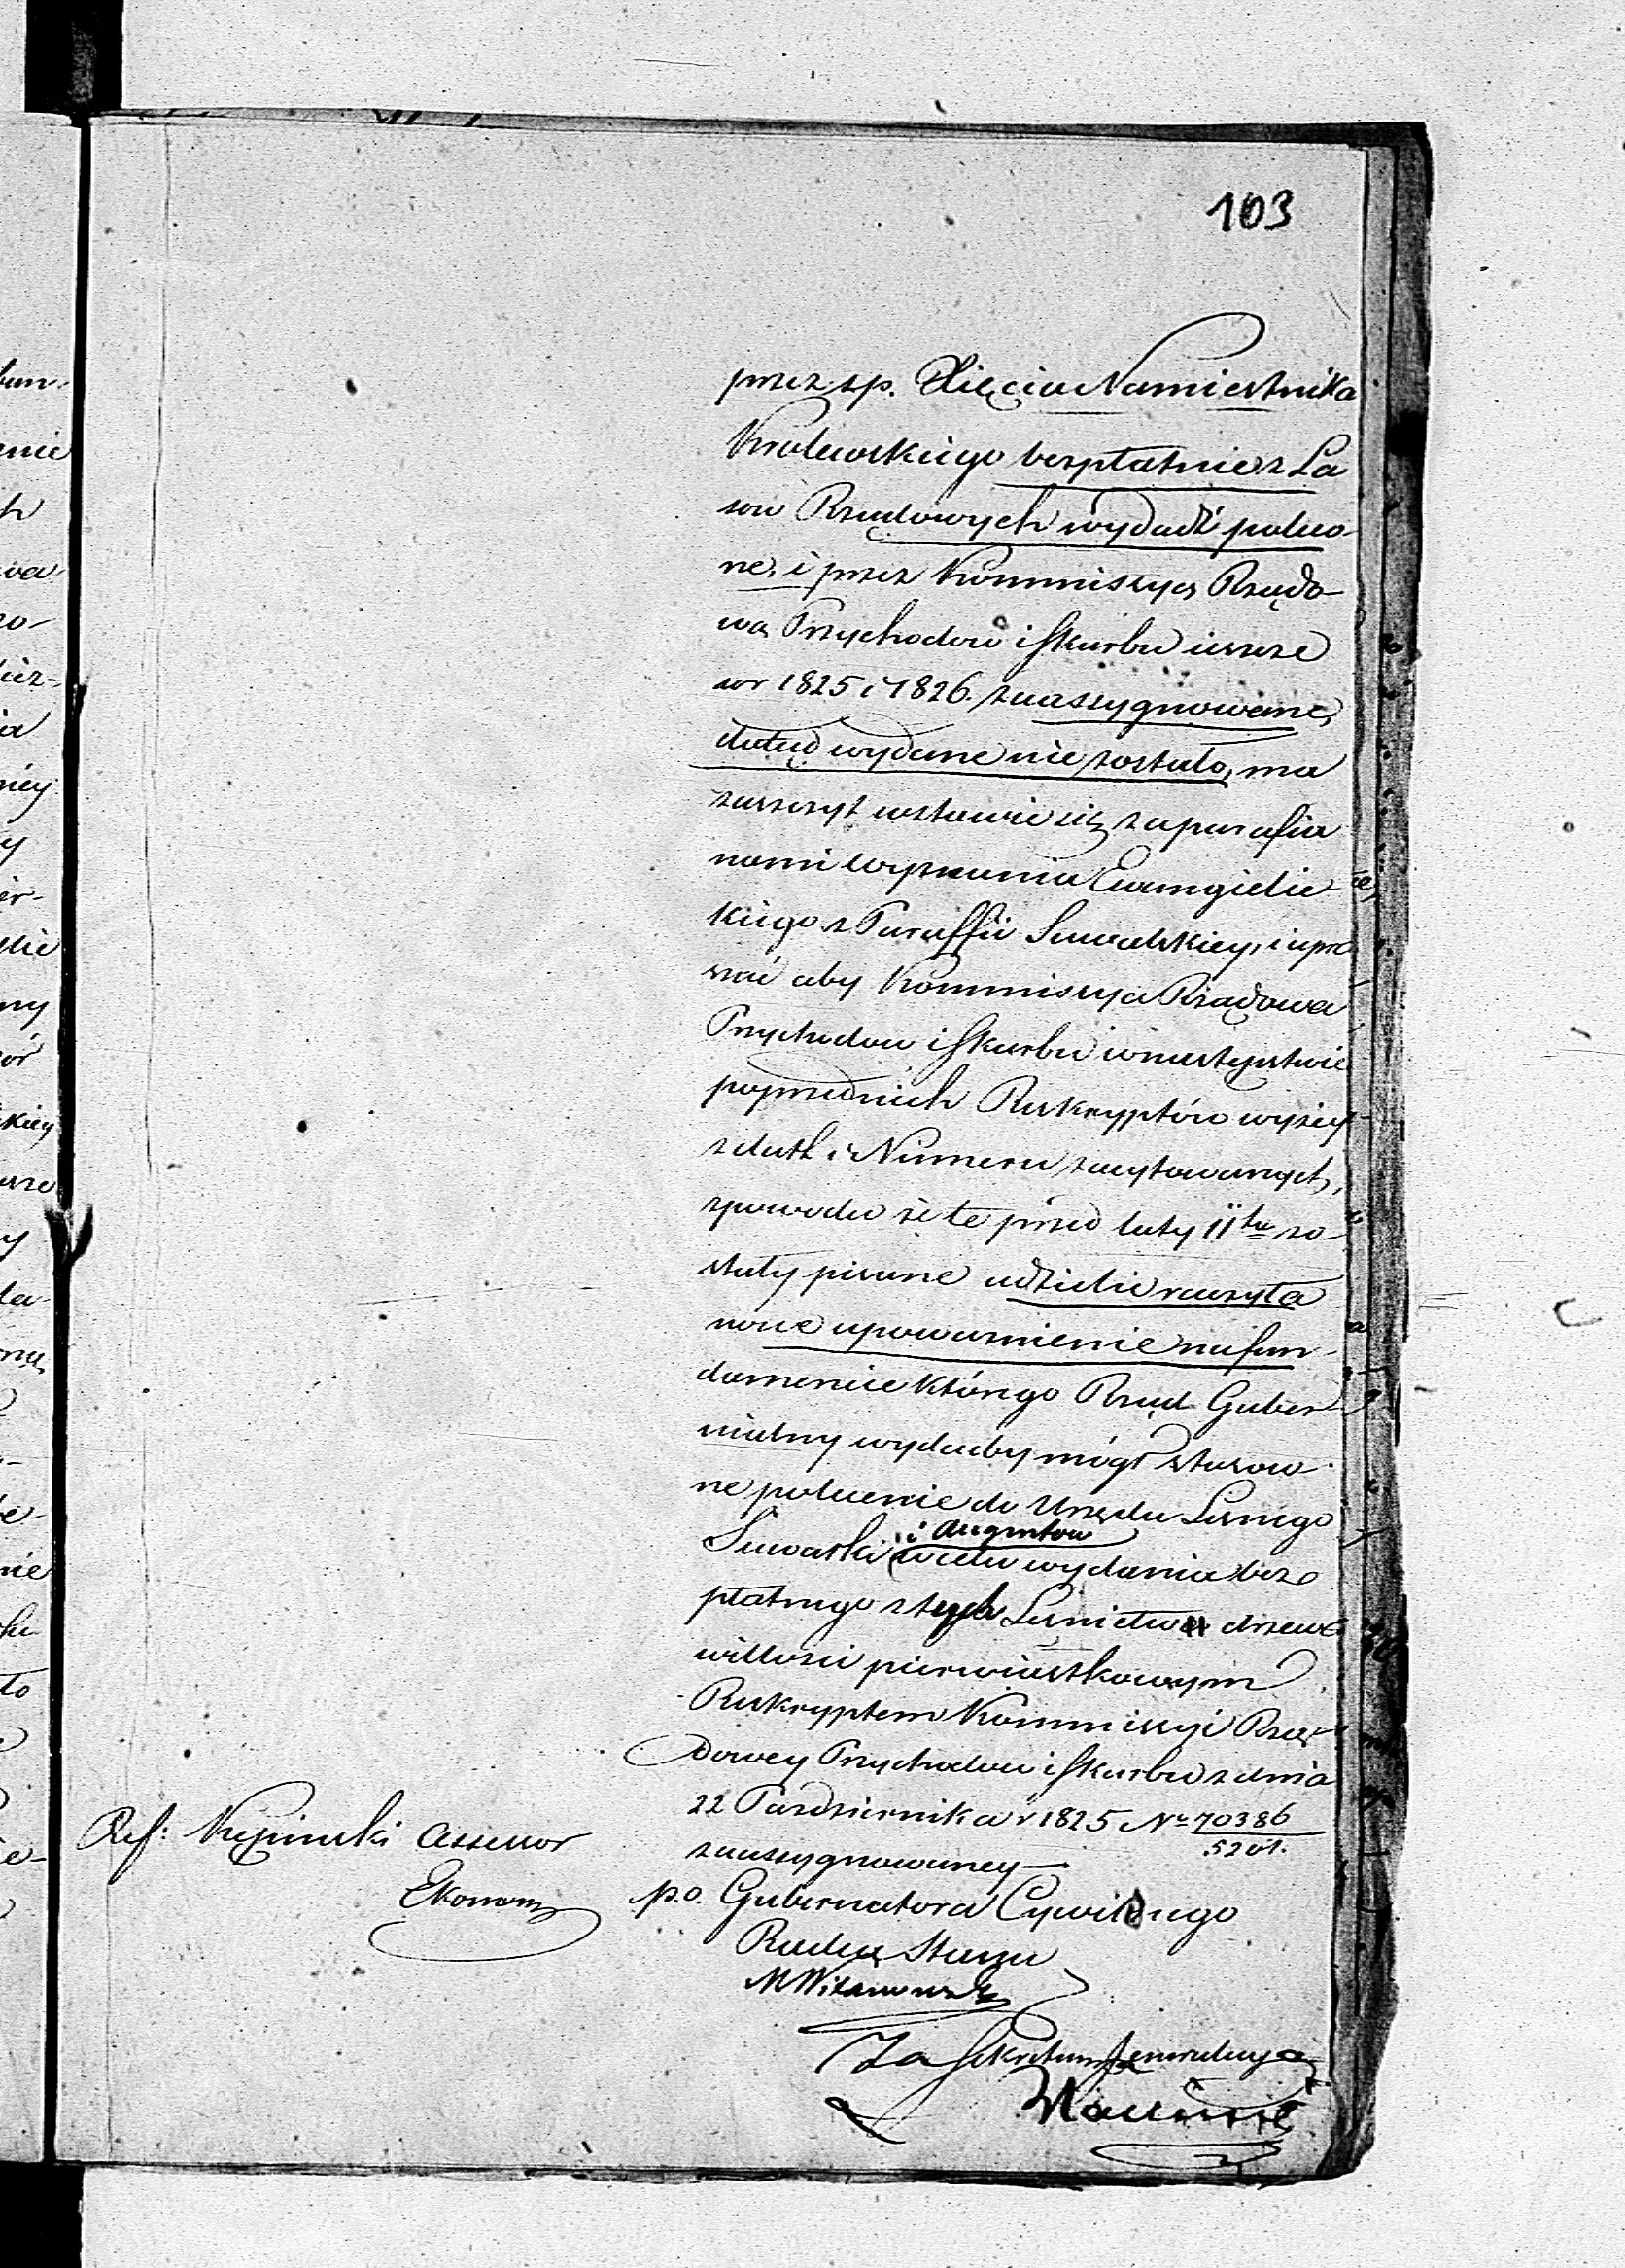 103
przez sp. Xięcia Namiestnika
Krolewskiego bezpłatnie z La
sow Rządowych wydadź poleco-
ne, i przez Kommissyą Rządo-
wą Przychodow i Skarbu ieszcze
w r 1825 i 1826. zaassygnowane,
dotąd wydane nie zostało, ma
zaszczyt wstawić się za parafia
nami wyznania Ewangielic-
kiego z Paraffii Suwalskiey, i upra
szać aby Kommissya Rządowa
Przychodow i Skarbu w następstwie
poprzednich Reskryptów wyżey
z dat i Numeru zacytowanych,
z powodu że te przed laty 11tu zo-
stały pisane udzielić raczyła
nowe upoważnienie na fun-
damencie którego Rząd Guber-
nialny wydaćby mógł stosow-
ne polecenie do Urzędu Leśnego
i Augustow
Suwałki w celu wydania bez
płatnego z tych Leśnictw drzewa
w illości pierwiastkowym
Reskryptem Kommissyi Rzą-
dowey Przychodow i Skarbu z dnia
22 Pazdziernika r 1825 No 70386
5201.
zaassygnowaney—
Ref: Kępinski Assessor
Ekonom
p.o. Gubernatora Cywilnego
Radca Stanu
Za Sekretarza Jeneralnego